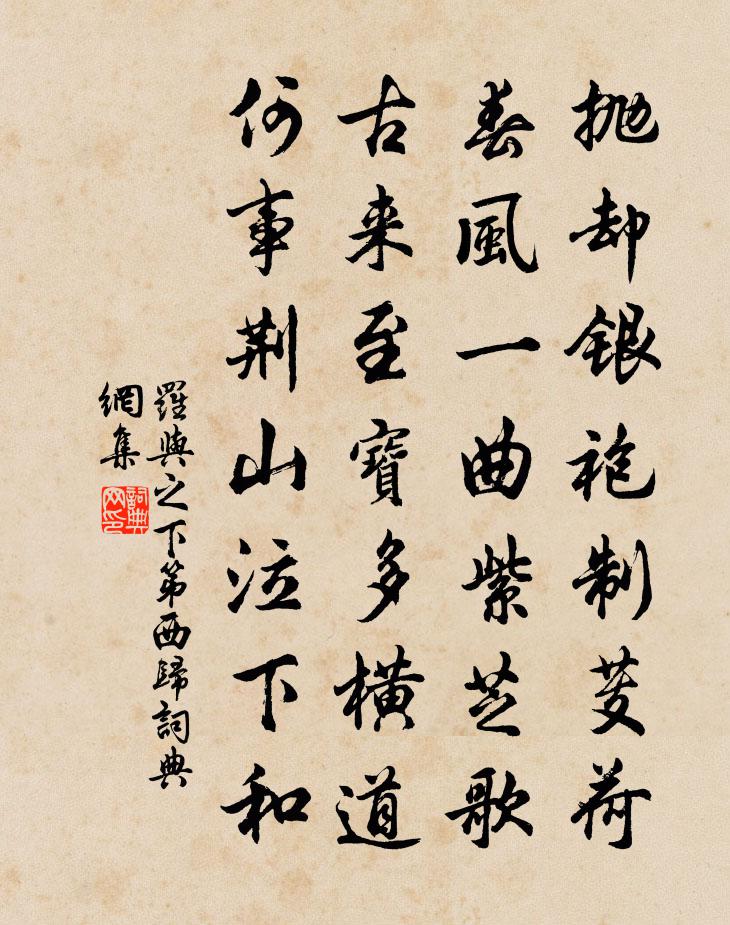 抛却銀袍制芰荷
春風一曲紫芝歌
古来至寶多橫道
何事荆山泣下和
羅與之下第西歸詞典
網集
詞典
网印